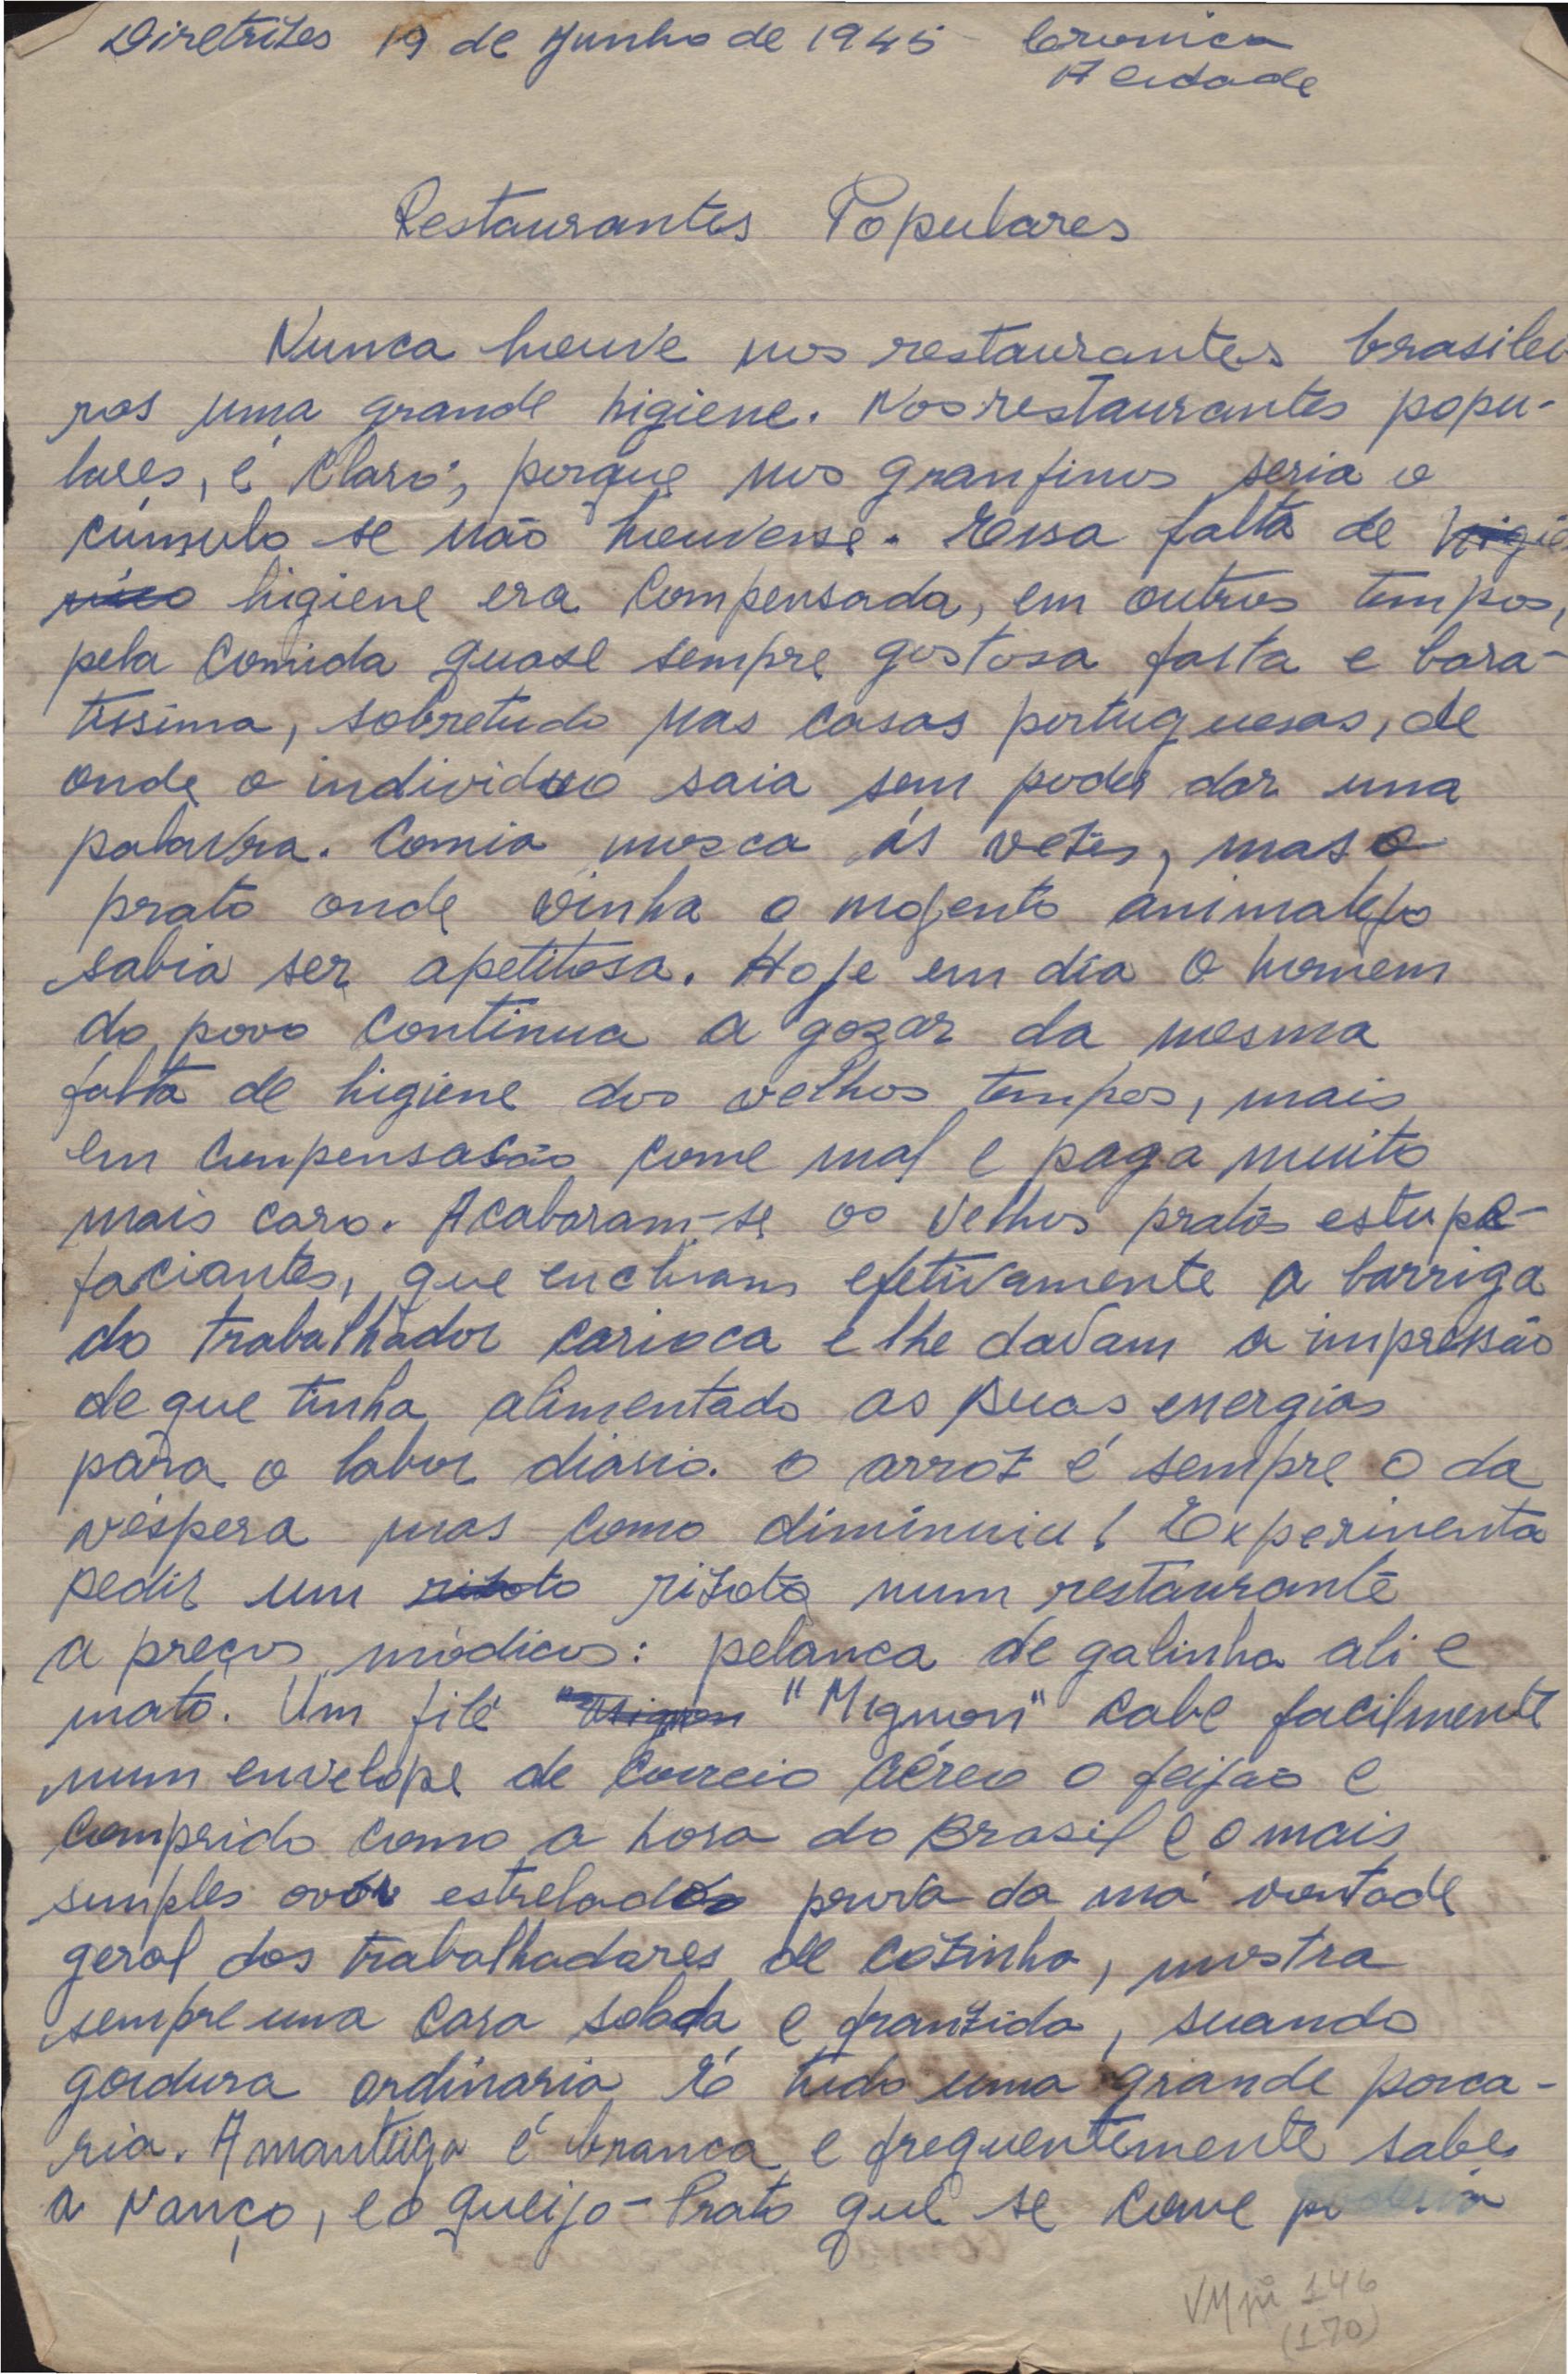 Diretrizes 19 de Junho de 1945 - Cronica
A cidade
Restaurantes Populares
Nunca houve nos restaurantes brasilei
ros uma grande higiene. Nos restaurantes popu-
lares, é claro, porque nos granfinos seria o
cúmulo se não houvesse. Essa falta de higiê
nico higiene era compensada, em outros tempos,
pela comida quase sempre gostosa farta e bara-
tissima, sobretudo nas casas portuguesas, de
onde o individuo saia sem poder dar uma
palavra. Comia mosca ás vezes, mas o
prato onde vinha o nojento animalejo
sabia ser apetitosa. Hoje em dia o homem
do povo continua a gozar da mesma
falta de higiene dos velhos tempos, mais
em compensasão come mal e paga muito
mais caro. Acabaram-se os velhos pratos estupe-
faciantes, que enchiam efetivamente a barriga
do trabalhador carioca e lhe davam a impressão
de que tinha alimentado as suas energias
para o labor diário. O arroz é sempre o da
véspera mas como diminuiu! Experimenta
pedir um risoto rizoto num restaurante
a preços módicos: pelanca de galinha ali e
mato. Um filé "Mignon "Mignon" cabe facilmente
num envelope de correio aéreo o feijão e
comprido como a hora do Brasil e o mais
simples ovos estrelados prova da má vontade
geral dos trabalhadores de cozinha, mostra
sempre uma cara solada e franzida, suando
gordura ordinaria É tudo uma grande porca-
ria. A manteiga é branca e frequentemente sabe
a ranço, e o queijo-Prato que se come poderia
VMpi 146
(170)